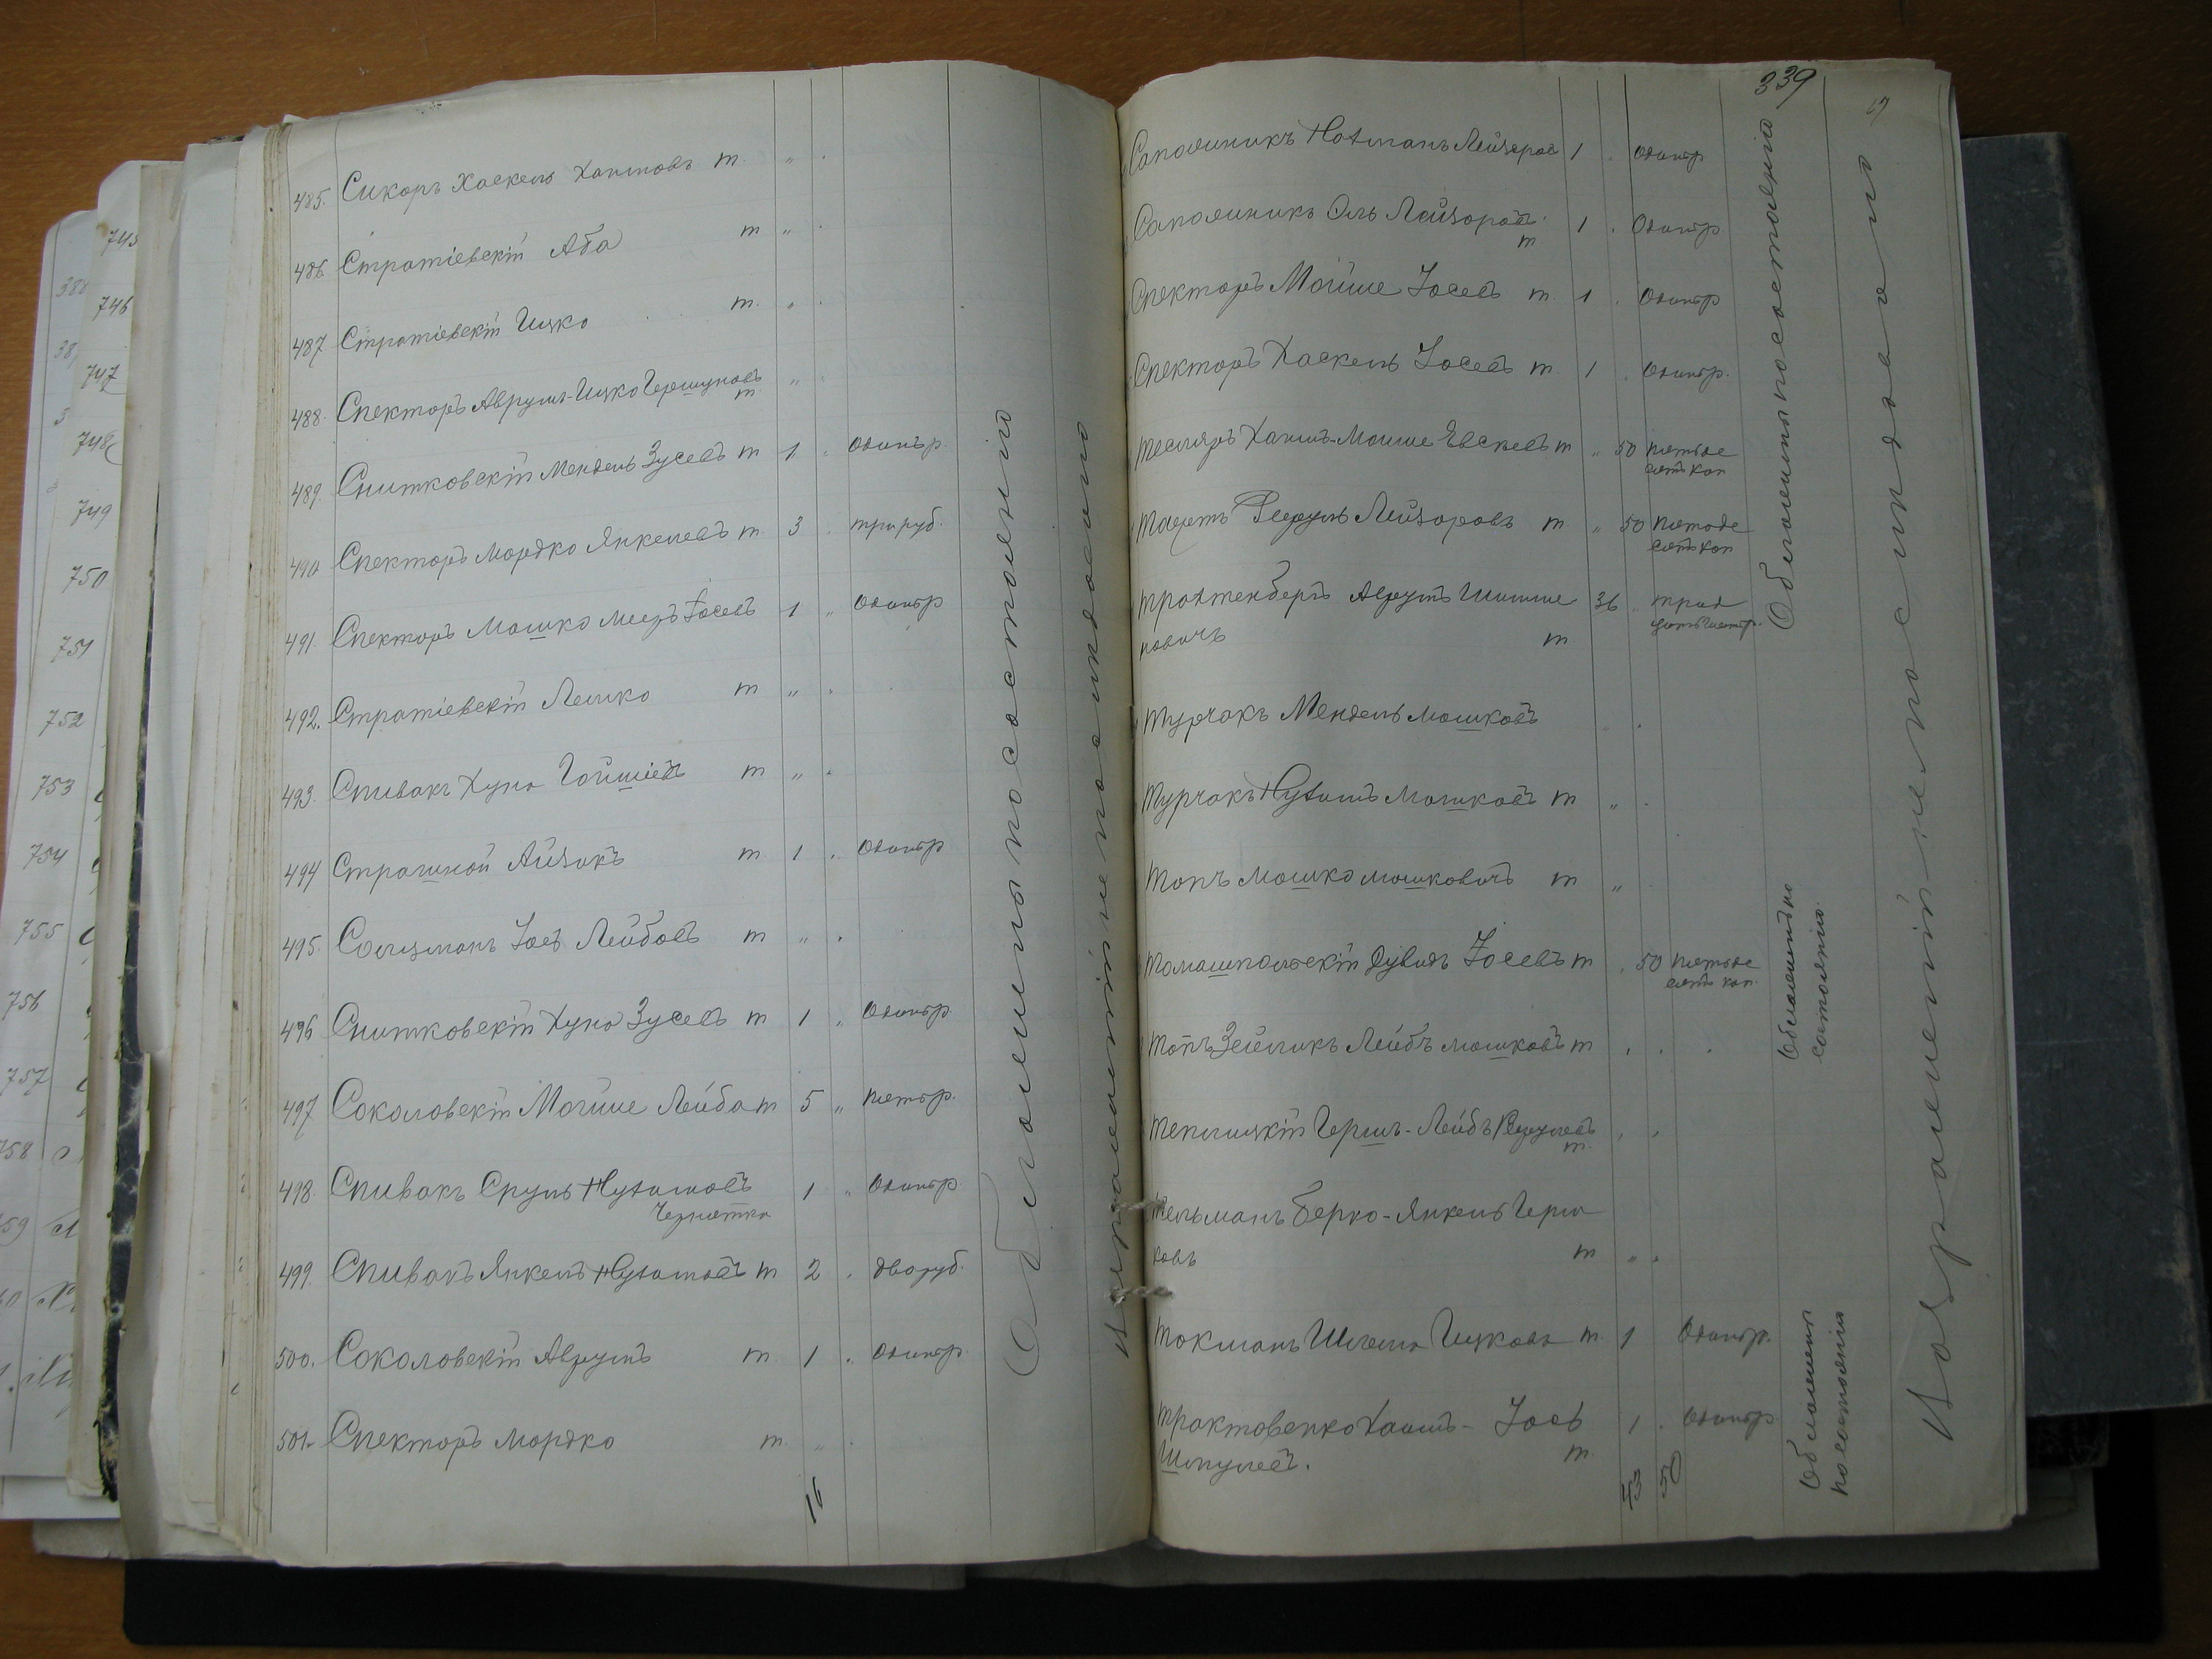 485. Сикоръ Хаскель Хаимовъ т. „ .
486. Стратіевскій Аба т „ .
487 Стратіевскій Ицко т. „ .
488. Спекторъ Аврумъ-Ицко Гершуновъ „ .
т.
489. Снитковскій Мендель Зусевъ т 1 . Одинъ р.
490 Спекторъ Мордко Янкелевъ т. 3 . три руб.
491. Спекторъ Мошко Мееръ Іосевъ 1 „ Одинъ р
492. Стратіевскій Лейко т „ .
493. Спивакъ Хуна т „ .
494 Страшной Айзикъ т. 1 . Одинъ р
495. Солцманъ Іось Лейбовъ т „ .
496 Снитковскій Хуна Зусевъ т 1 „ Одинъ р
497 Соколовскій Мойше Лейба т 5 „ Пять р.
498. Спивакъ Сруль Нухимовъ 1 „ Одинъ р
499. Спивакъ Янкель Нухимовъ т 2 . два руб.
500. Соколовскій Аврумъ т. 1 . Одинъ р
501. Спекторъ Мордко т. „ .
16
Обложены по состоянію
Возраженій не послѣдовало
339
Сапожникъ Нотманъ Лейзеров 1 . Один р
Сапожникъ Эль Лейзоровъ 1 . Один р
т
Спекторъ Мойше Іосевъ т. 1 . Один р
Спекторъ Хаскель Іосевъ т. 1 . Один р.
Тесляръ Хаимъ-Мойше Евсеевъ т „ 50 Пятьде
сятъ коп
Лейзоровъ т „ 50 Пятьде
сятъ коп
Трахтенбергъ Аврумъ 36 „ трид
новичъ т
Турчакъ Мендель Мошковъ
Турчакъ Нухимъ Мошковъ т „ .
Топъ Мошко Мошковичъ т „
Томашпольскій Дувидъ Іосевъ т . 50 Пятьде
сятъ коп.
Топъ Зейликъ Лейбъ Мошковъ т . . .
Теплицкій Гершъ-Лейбъ Сруулевъ . .
т.
Тельманъ Берко-Янкель Герш
ковъ т „ .
Токманъ Шлема Ицковъ т. 1 Один р.
Трактовенко Хаимъ - Іось 1 . Один р
Шмулевъ. т.
43 50
Обложены по состоянію
Обложенъ по
состоянію.
Обложены
по состоянію
Возраженій не послѣдовало